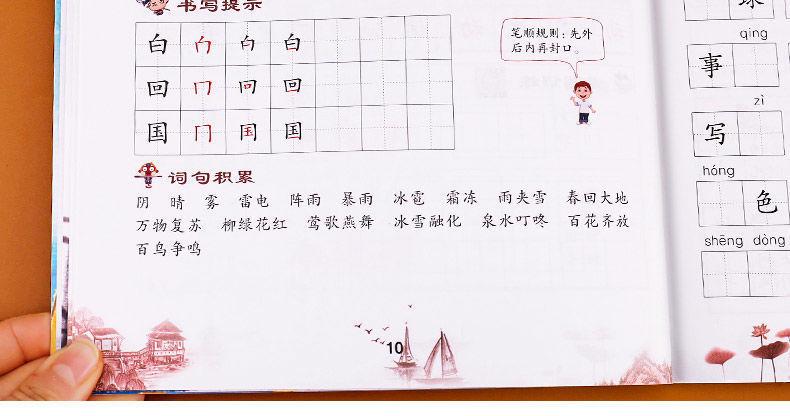 书写提示
笔顺规则：先外
后内再封口。
白
回
国
词句积累
阴 晴 雾 雷电 阵雨 暴雨 冰雹 霜冻 雨夹雪 春回大地
万物复苏 柳绿花红 莺歌燕舞 冰雪融化 泉水叮咚 百花齐放
百鸟争鸣
10
qing
事
zì
写
hóng
色
shēng dòng